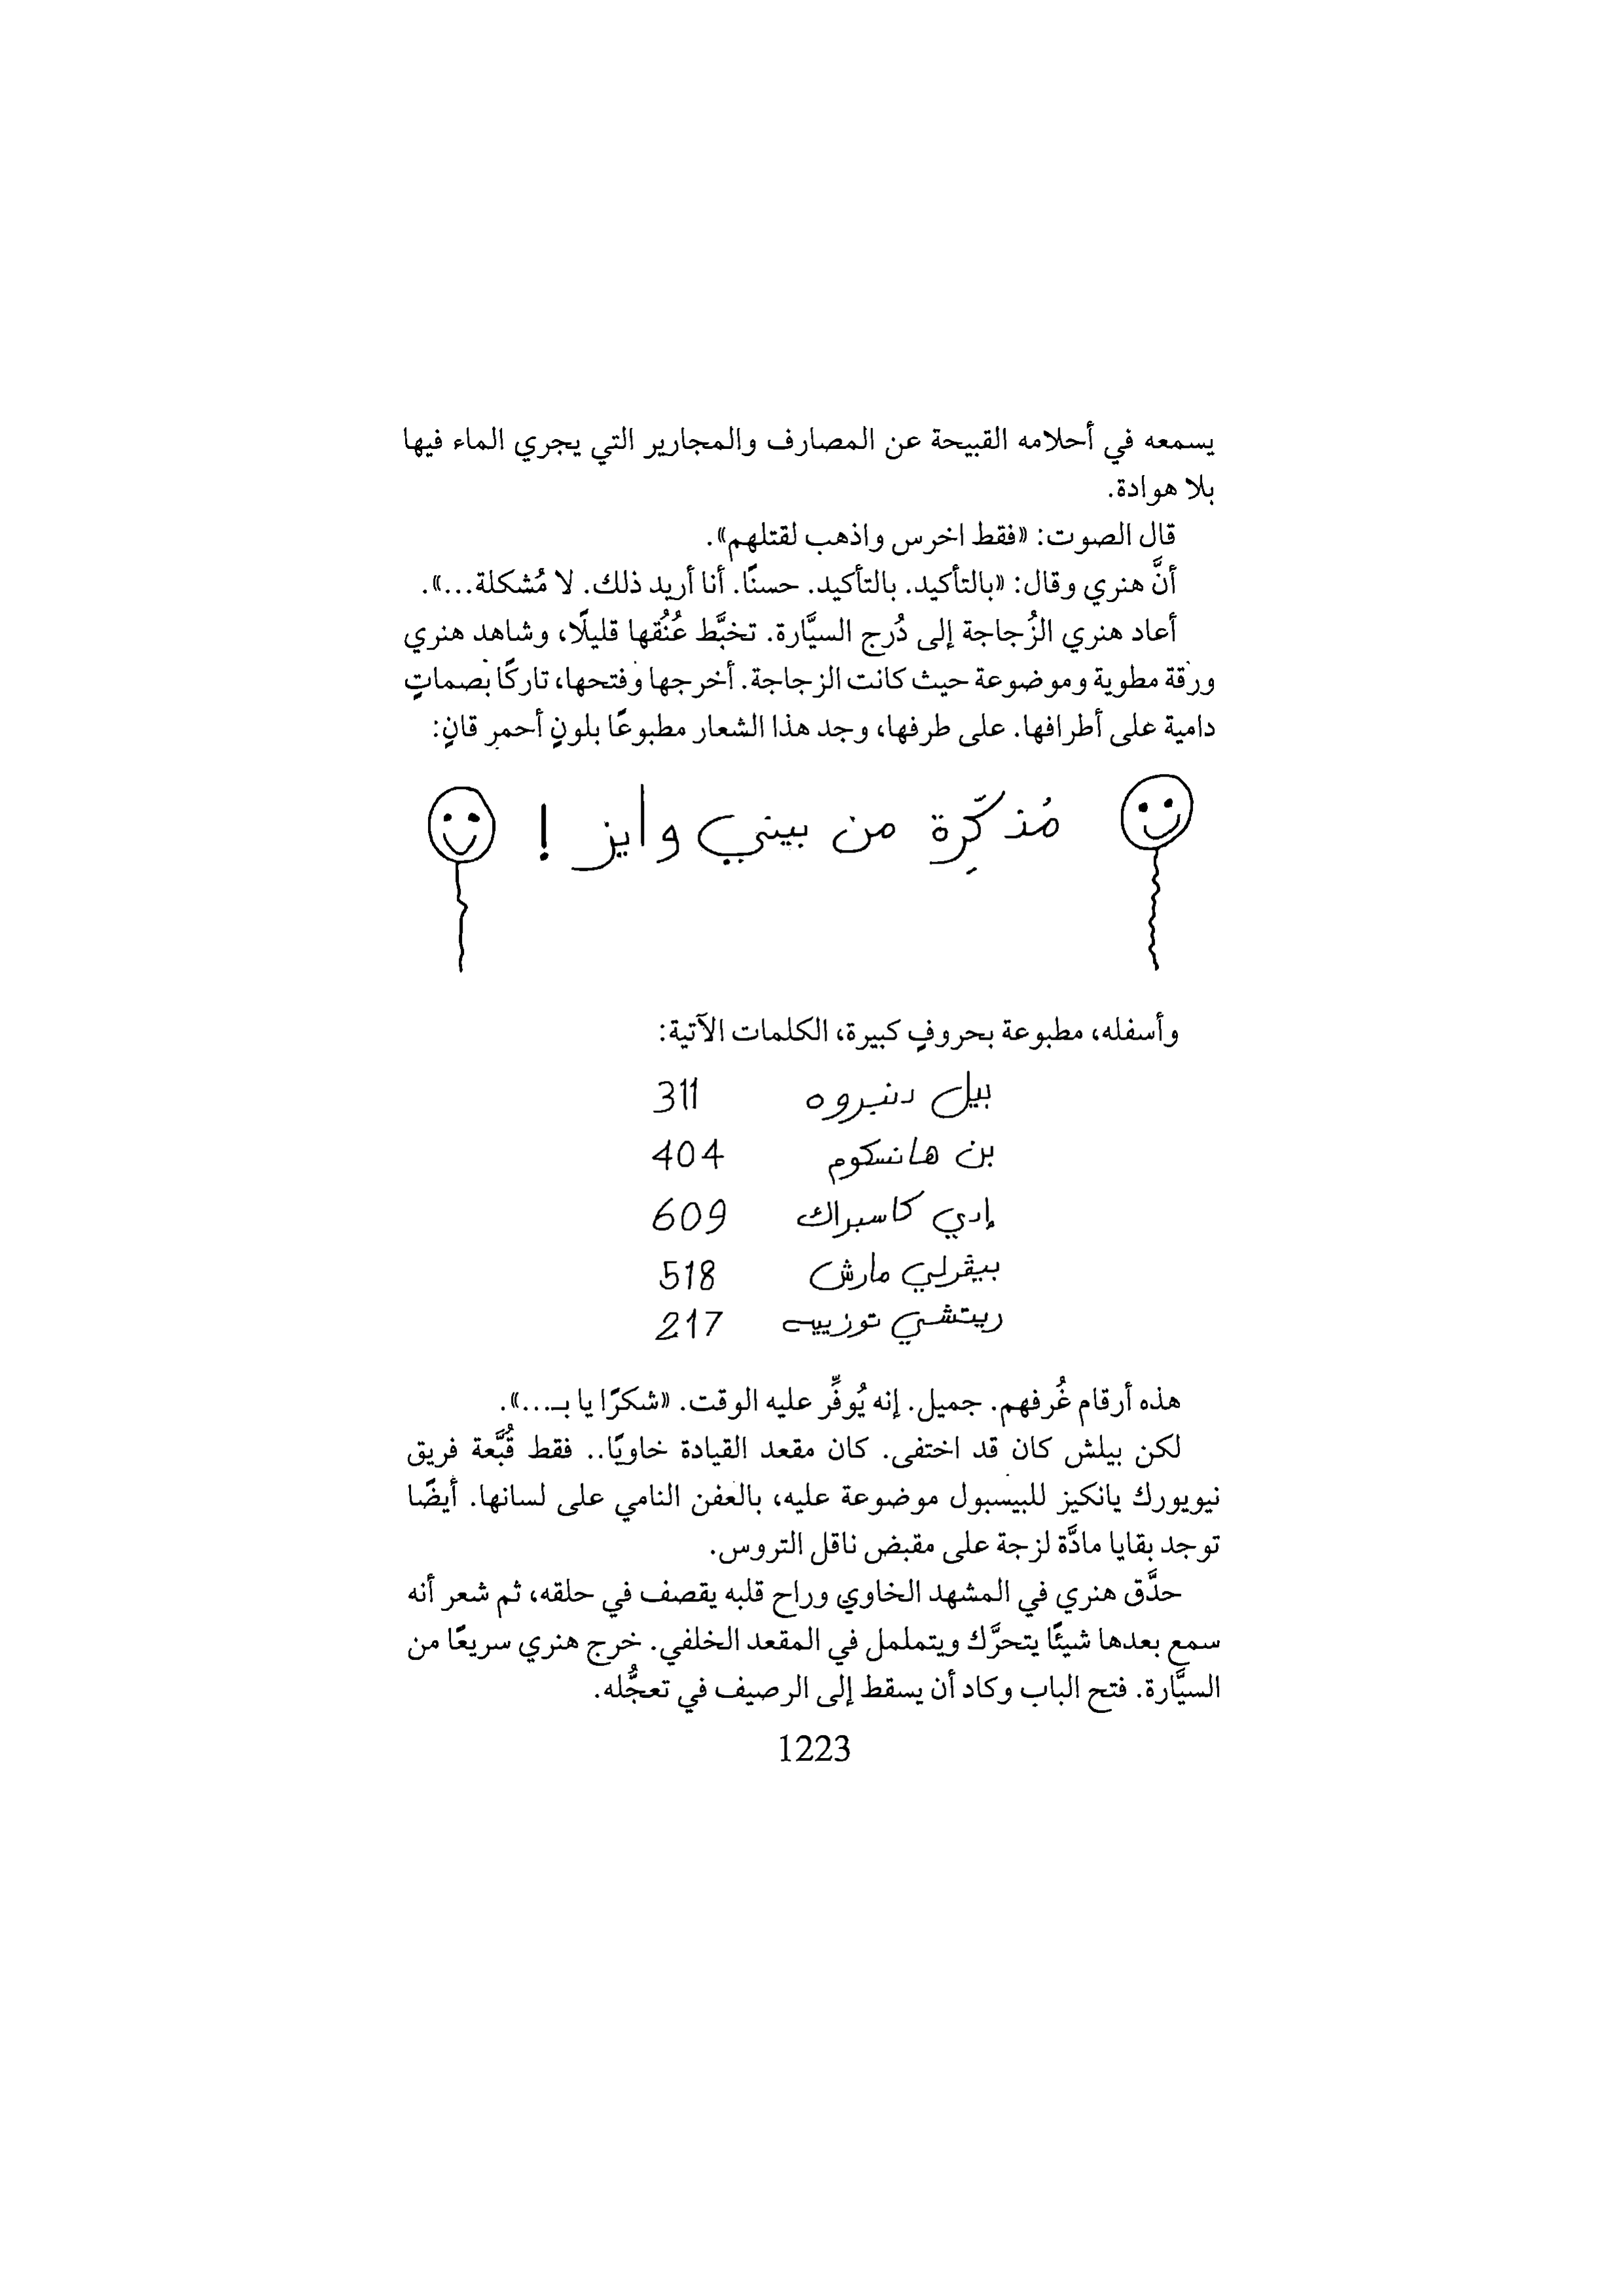 يسمعه في أحلامه القبيحة عن المصارف والمجارير التي يجري الماء فيها
بلا هوادة.
قال الصوت: «فقط اخرس واذهب لقتلهم».
أنَّ هنري وقال: «بالتأكيد. بالتأكيد. حسنًا. أنا أريد ذلك. لا مُشكلة...».
أعاد هنري الزُجاجة إلى دُرج السيَّارة. تخبَّط عُنُقها قليلًا، وشاهد هنري
ورقة مطوية وموضوعة حيث كانت الزجاجة. أخرجها وفتحها، تاركًا بصماتٍ
دامية على أطرافها. على طرفها، وجد هذا الشعار مطبوعًا بلونٍ أحمرٍ قانٍ:
مُذكِّرة من بيني وايز !
وأسفله، مطبوعة بحروفٍ كبيرة، الكلمات الآتية:
بيل دنبروه 311
بن هانسكوم 404
إدي كاسبراك 609
بيڤرلي مارش 518
ريتشي توزييه 217
هذه أرقام غُرفهم. جميل. إنه يُوفِّر عليه الوقت. «شكرًا يا بـ...».
لكن بيلش كان قد اختفى. كان مقعد القيادة خاويًا.. فقط قُبَّعة فريق
نيويورك يانكيز للبيسبول موضوعة عليه، بالعفن النامي على لسانها. أيضًا
توجد بقايا مادَّة لزجة على مقبض ناقل التروس.
حدَّق هنري في المشهد الخاوي وراح قلبه يقصف في حلقه، ثم شعر أنه
سمع بعدها شيئًا يتحرَّك ويتململ في المقعد الخلفي. خرج هنري سريعًا من
السيَّارة. فتح الباب وكاد أن يسقط إلى الرصيف في تعجُّله.
1223